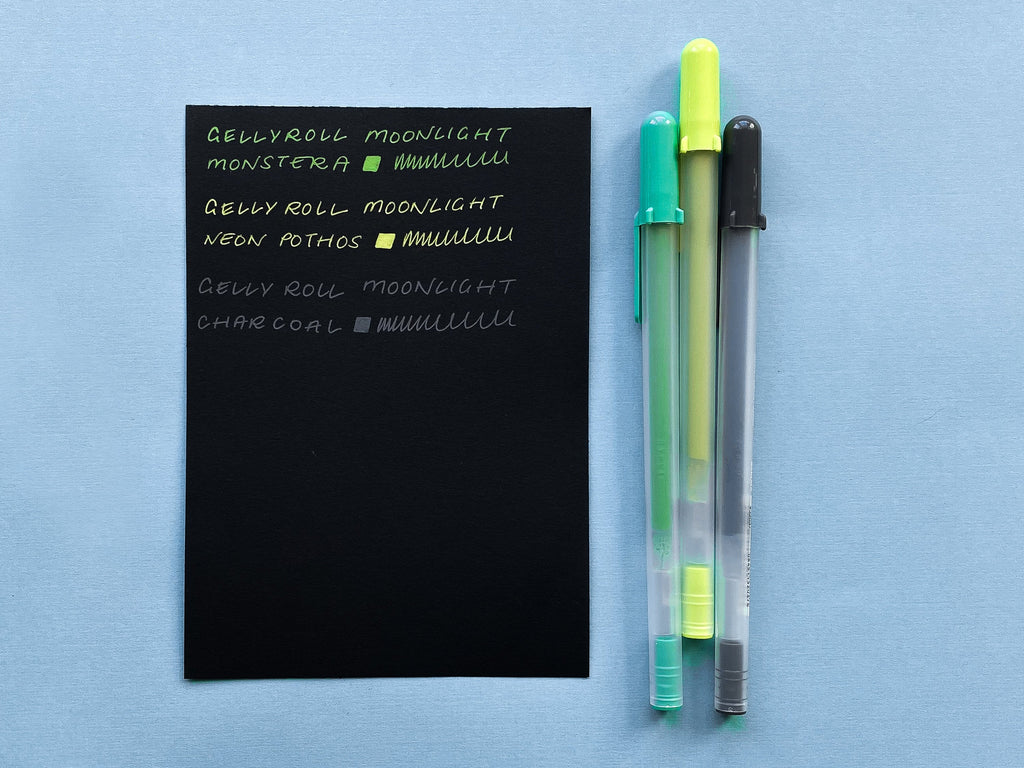 GELLYROLL MOONLIGHT
MONSTERA
GELLY ROLL MOONLIGHT
NEON POTHOS
GELLY ROLL MOONLIGHT
CHARCOAL